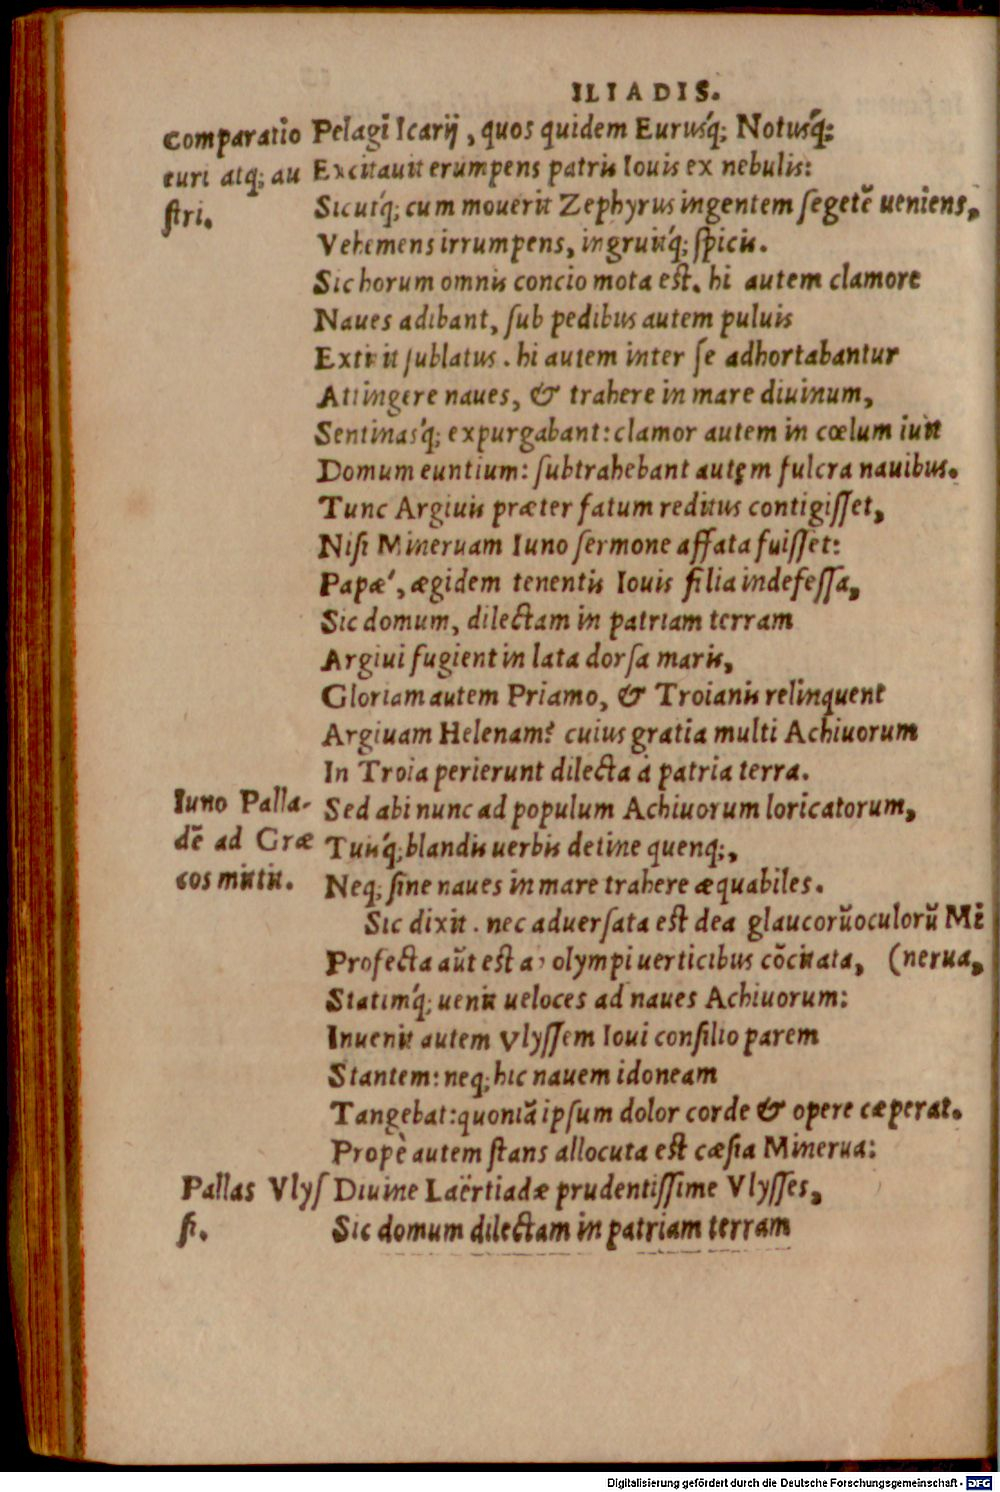 ILIADIS.
Comparatio
euri atq; au
ſtri.
Pelagi Icarij, quos quidem Eurusq́; Notusq́;
Excitauit erumpens patris Iouis ex nebulis:
Sicutq́; cum mouerit Zephyrus ingentem ſegetẽ ueniens,
Vehemens irrumpens, ingruitq́; ſpicis.
Sic horum omnis concio mota eſt. hi autem clamore
Naues adibant, ſub pedibus autem puluis
Extitit ſublatus. hi autem inter ſe adhortabantur
Attingere naues, & trahere in mare diuinum,
Sentinasq́; expurgabant: clamor autem in cœlum iuit
Domum euntium: ſubtrahebant autem fulcra nauibus.
Tunc Argiuis præter fatum reditus contigiſſet,
Niſi Mineruam Iuno ſermone affata fuiſſet:
Papæ, ægidem tenentis Iouis filia indefeſſa,
Sic domum, dilectam in patriam terram
Argiui fugient in lata dorſa maris,
Gloriam autem Priamo, & Troianis relinquent
Argiuam Helenam? cuius gratia multi Achiuorum
In Troia perierunt dilecta à patria terra.
Iuno Palla-
dẽ ad Græ
cos mittit.
Sed abi nunc ad populum Achiuorum loricatorum,
Tuisq́; blandis uerbis detine quenq;,
Neq; ſine naues in mare trahere æquabiles.
Sic dixit. nec aduerſata eſt dea glaucorũ oculorũ Mi
Profecta aũt est a olympi uerticibus cõcitata, (nerua,
Statimq́; uenit ueloces ad naues Achiuorum:
Inuenit autem Vlyſſem Ioui conſilio parem
Stantem: neq; hic nauem idoneam
Tangebat: quoniã ipſum dolor corde & opere cæperat.
Propè autem ſtans allocuta eſt cæſia Minerua:
Pallas Vlyſ
ſi.
Diuine Laërtiadæ prudentiſſime Vlyſſes,
Sic domum dilectam in patriam terram
Digitalisierung gefördert durch die Deutsche Forschungsgemeinschaft - DFG